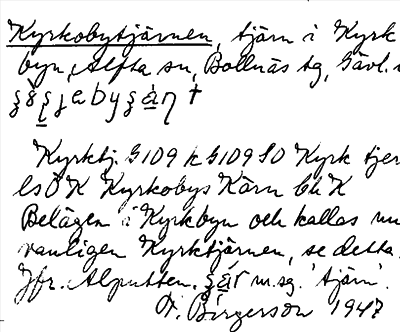 Kyrkobytjärnen, tjärn i Kyrk
byn, Alfta sn, Bollnäs tg, Gävl.
Kyrktj. G109 k G109 SO Kyrk tjer
ls Ö K Kyrkobys Kärn bh K
Belägen i Kyrkbyn och kallas nu
vanligen Kyrktjärnen, se detta.
Jfr. Alputten. m.sg. 'tjärn'.
F. Birgerson 1947